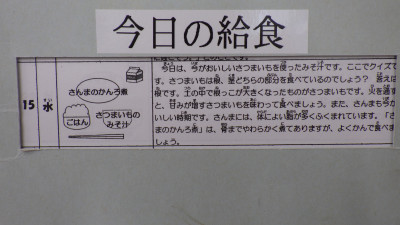 今日の給食
15
水
さんまのかんろ煮
ごはん
さつまいもの
みそ汁
今日は、今がおいしいさつまいもを使ったみそ汁です。ここでクイズで
す。さつまいもは根、茎どちらの部分を食べているのでしょう？　答えは
根です。土の中で根っこが大きくなったものがさつまいもです。火を通す
と、甘みが増すさつまいもを味わって食べましょう。また、さんまも今が
いしい時期です。さんまには、体によい脂が多くふくまれています。「さ
まのかんろ煮」は、骨までやわらかく煮てありますが、よくかんで食べま
しょう。